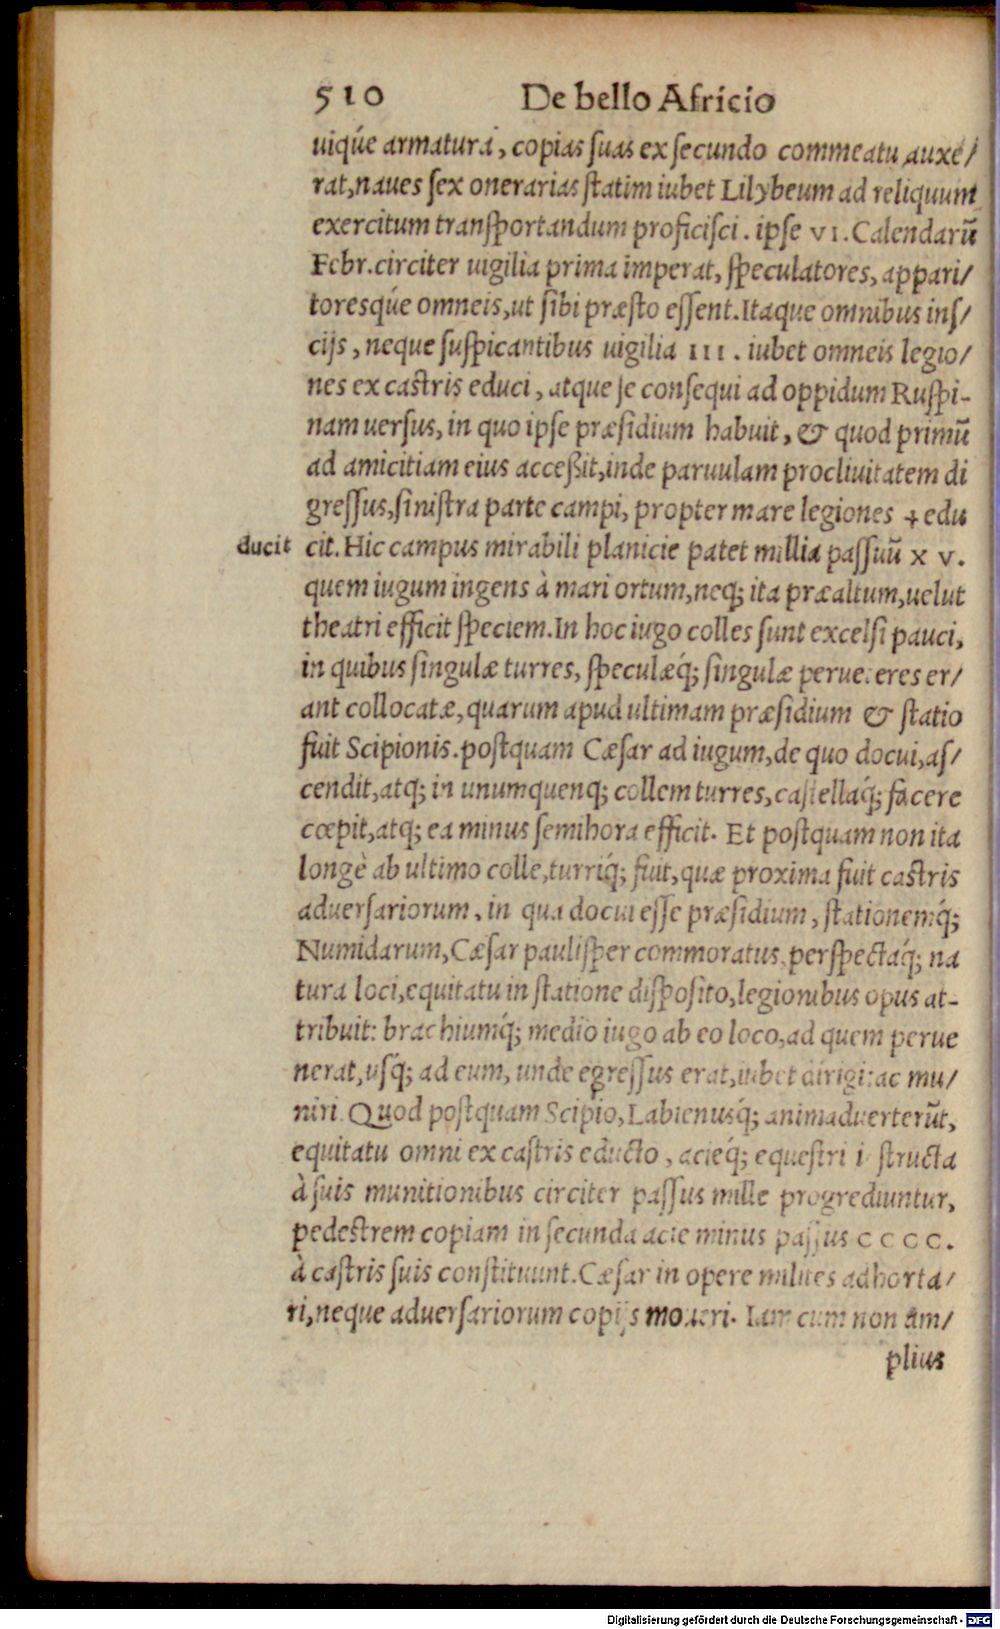 510 De bello Africio
uiq́ue armatura, copias suas ex secundo commeatu auxe/
rat, naues sex onerarias statim iubet Lilybeum ad reliquum
exercitum transportandum proficisci. ipse VI. Calendarũ
Febr. circiter uigilia prima imperat, speculatores, appari/
toresq́ue omneis, ut sibi præsto essent. Itaque omnibus ins/
cijs, neque suspicantibus uigilia III. iubet omneis legio/
nes ex castris educi, atque se consequi ad oppidum Ruspi-
nam uersus, in quo ipse præsidium habuit, & quod primũ
ad amicitiam eius acceßit, inde paruulam procliuitatem di
gressus, sinistra parte campi, propter mare legiones + edu
ducit cit. Hic campus mirabili planicie patet millia passuũ XV.
quem iugum ingens à mari ortum, neq; ita præaltum, uelut
theatri efficit speciem. In hoc iugo colles sunt excelsi pauci,
in quibus singulæ turres, speculæq́; singulæ perueteres er/
ant collocatæ, quarum apud ultimam præsidium & statio
fuit Scipionis. postquam Cæsar ad iugum, de quo docui, as/
cendit, atq; in unumquenq; collem turres, castellaq́; facere
cœpit, atq; ea minus semihora efficit. Et postquam non ita
longè ab ultimo colle, turriq́; fuit, quæ proxima fuit castris
aduersariorum, in qua docui esse præsidium, stationemq́;
Numidarum, Cæsar paulisper commoratus, perspectaq́; na
tura loci, equitatu in statione disposito, legionibus opus at-
tribuit: brachiumq́; medio iugo ab eo loco, ad quem perue
nerat, usq́; ad eum, unde egressus erat, iubet dirigi: ac mu/
niri. Quod postquam Scipio, Labienusq́; animaduerterũt,
equitatu omni ex castris educto, acieq́; equestri instructa
à suis munitionibus circiter passus mille progrediuntur,
pedestrem copiam in secunda acie minus passus CCCC.
à castris suis constituunt. Cæsar in opere milites adhorta/
ri, neque aduersariorum copijs moueri. Iam cum non am/
plius
Digitalisierung gefördert durch die Deutsche Forschungsgemeinschaft - DFG